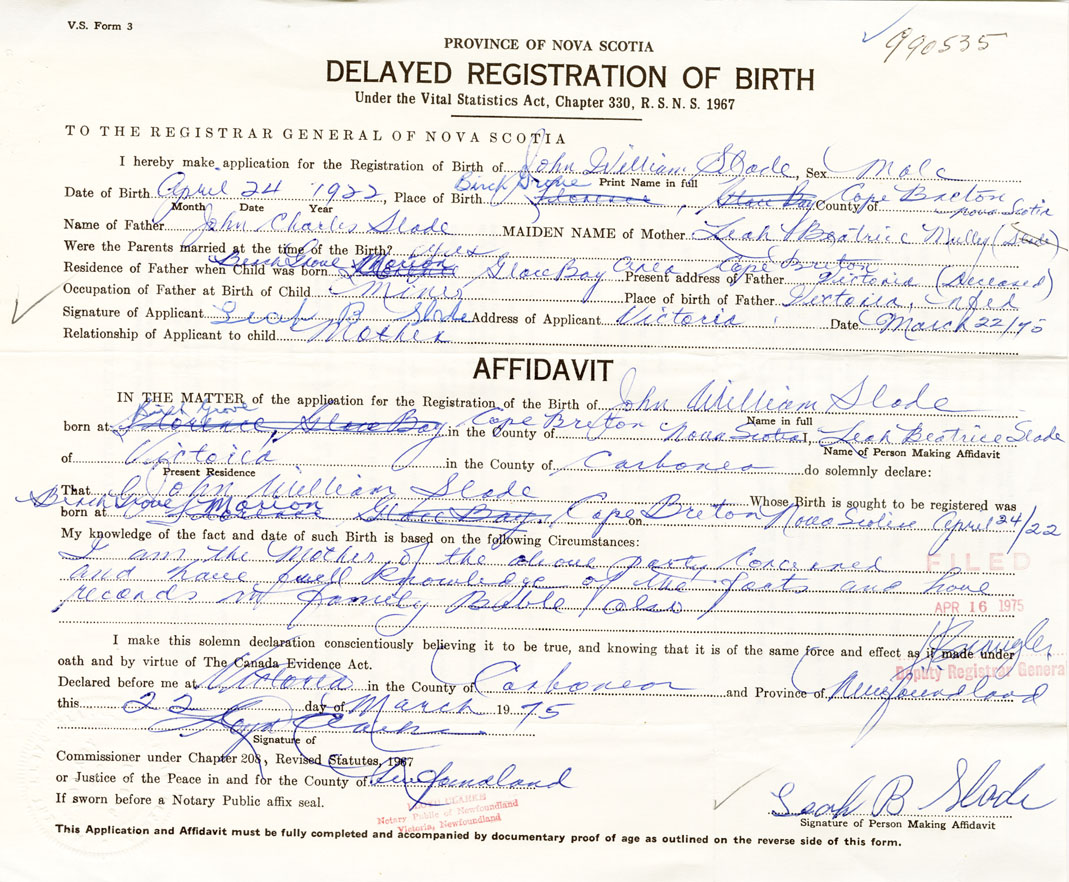 V.S. Form 3
990535
PROVINCE OF NOVA SCOTIA
DELAYED REGISTRATION OF BIRTH
Under the Vital Statistics Act, Chapter 330, R.S.N.S. 1967
TO THE REGISTRAR GENERAL OF NOVA SCOTIA
I hereby make application for the Registration of Birth of John William Slade, Sex Male
Print Name in full
Date of Birth April 24 1922, Place of Birth Birch Grove Florence, Glace Bay County of Cape Breton
Month Date Year Nova Scotia
Name of Father John Charles Slade MAIDEN NAME of Mother Leah Beatrice (Slade)
Were the Parents married at the time of the Birth?
Residence of Father when Child was born Birch Grove Marion Glace Bay Cape Breton Present address of Father Victoria (Deceased)
Occupation of Father at Birth of Child Miner Place of birth of Father Victoria, Nfld
Signature of Applicant Leah B Slade Address of Applicant Victoria Date March 22/75
Relationship of Applicant to child Mother
AFFIDAVIT
IN THE MATTER of the application for the Registration of the Birth of John William Slade
Name in full
born at Birch Grove Florence, Glace Bay in the County of Cape Breton Nova Scotia I, Leah Beatrice Slade
Name of Person Making Affidavit
of Victoria in the County of Carbonear do solemnly declare:
Present Residence
That John William Slade Whose Birth is sought to be registered was
born at Birch Grove, Marion Florence Glace Bay. Cape Breton on Nova Scotia April 24/22
My knowledge of the fact and date of such Birth is based on the following Circumstances:
I am the Mother of the above party concerned
and have full knowledge of the facts and have
records in family Bible also
FILED
APR 16 1975
Deputy Registrar General
I make this solemn declaration conscientiously believing it to be true, and knowing that it is of the same force and effect as if made under
oath and by virtue of The Canada Evidence Act.
Declared before me at Victoria in the County of Carbonear and Province of Newfoundland
this 22 day of March 1975
Signature of
Commissioner under Chapter 208, Revised Statutes, 1967
or Justice of the Peace in and for the County of Newfoundland
If sworn before a Notary Public affix seal.
Notary Public of Newfoundland
Victoria, Newfoundland
Leah B Slade
Signature of Person Making Affidavit
This Application and Affidavit must be fully completed and accompanied by documentary proof of age as outlined on the reverse side of this form.